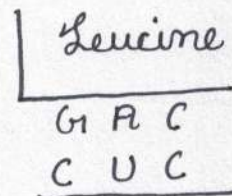 Leucine
G A C
C U C